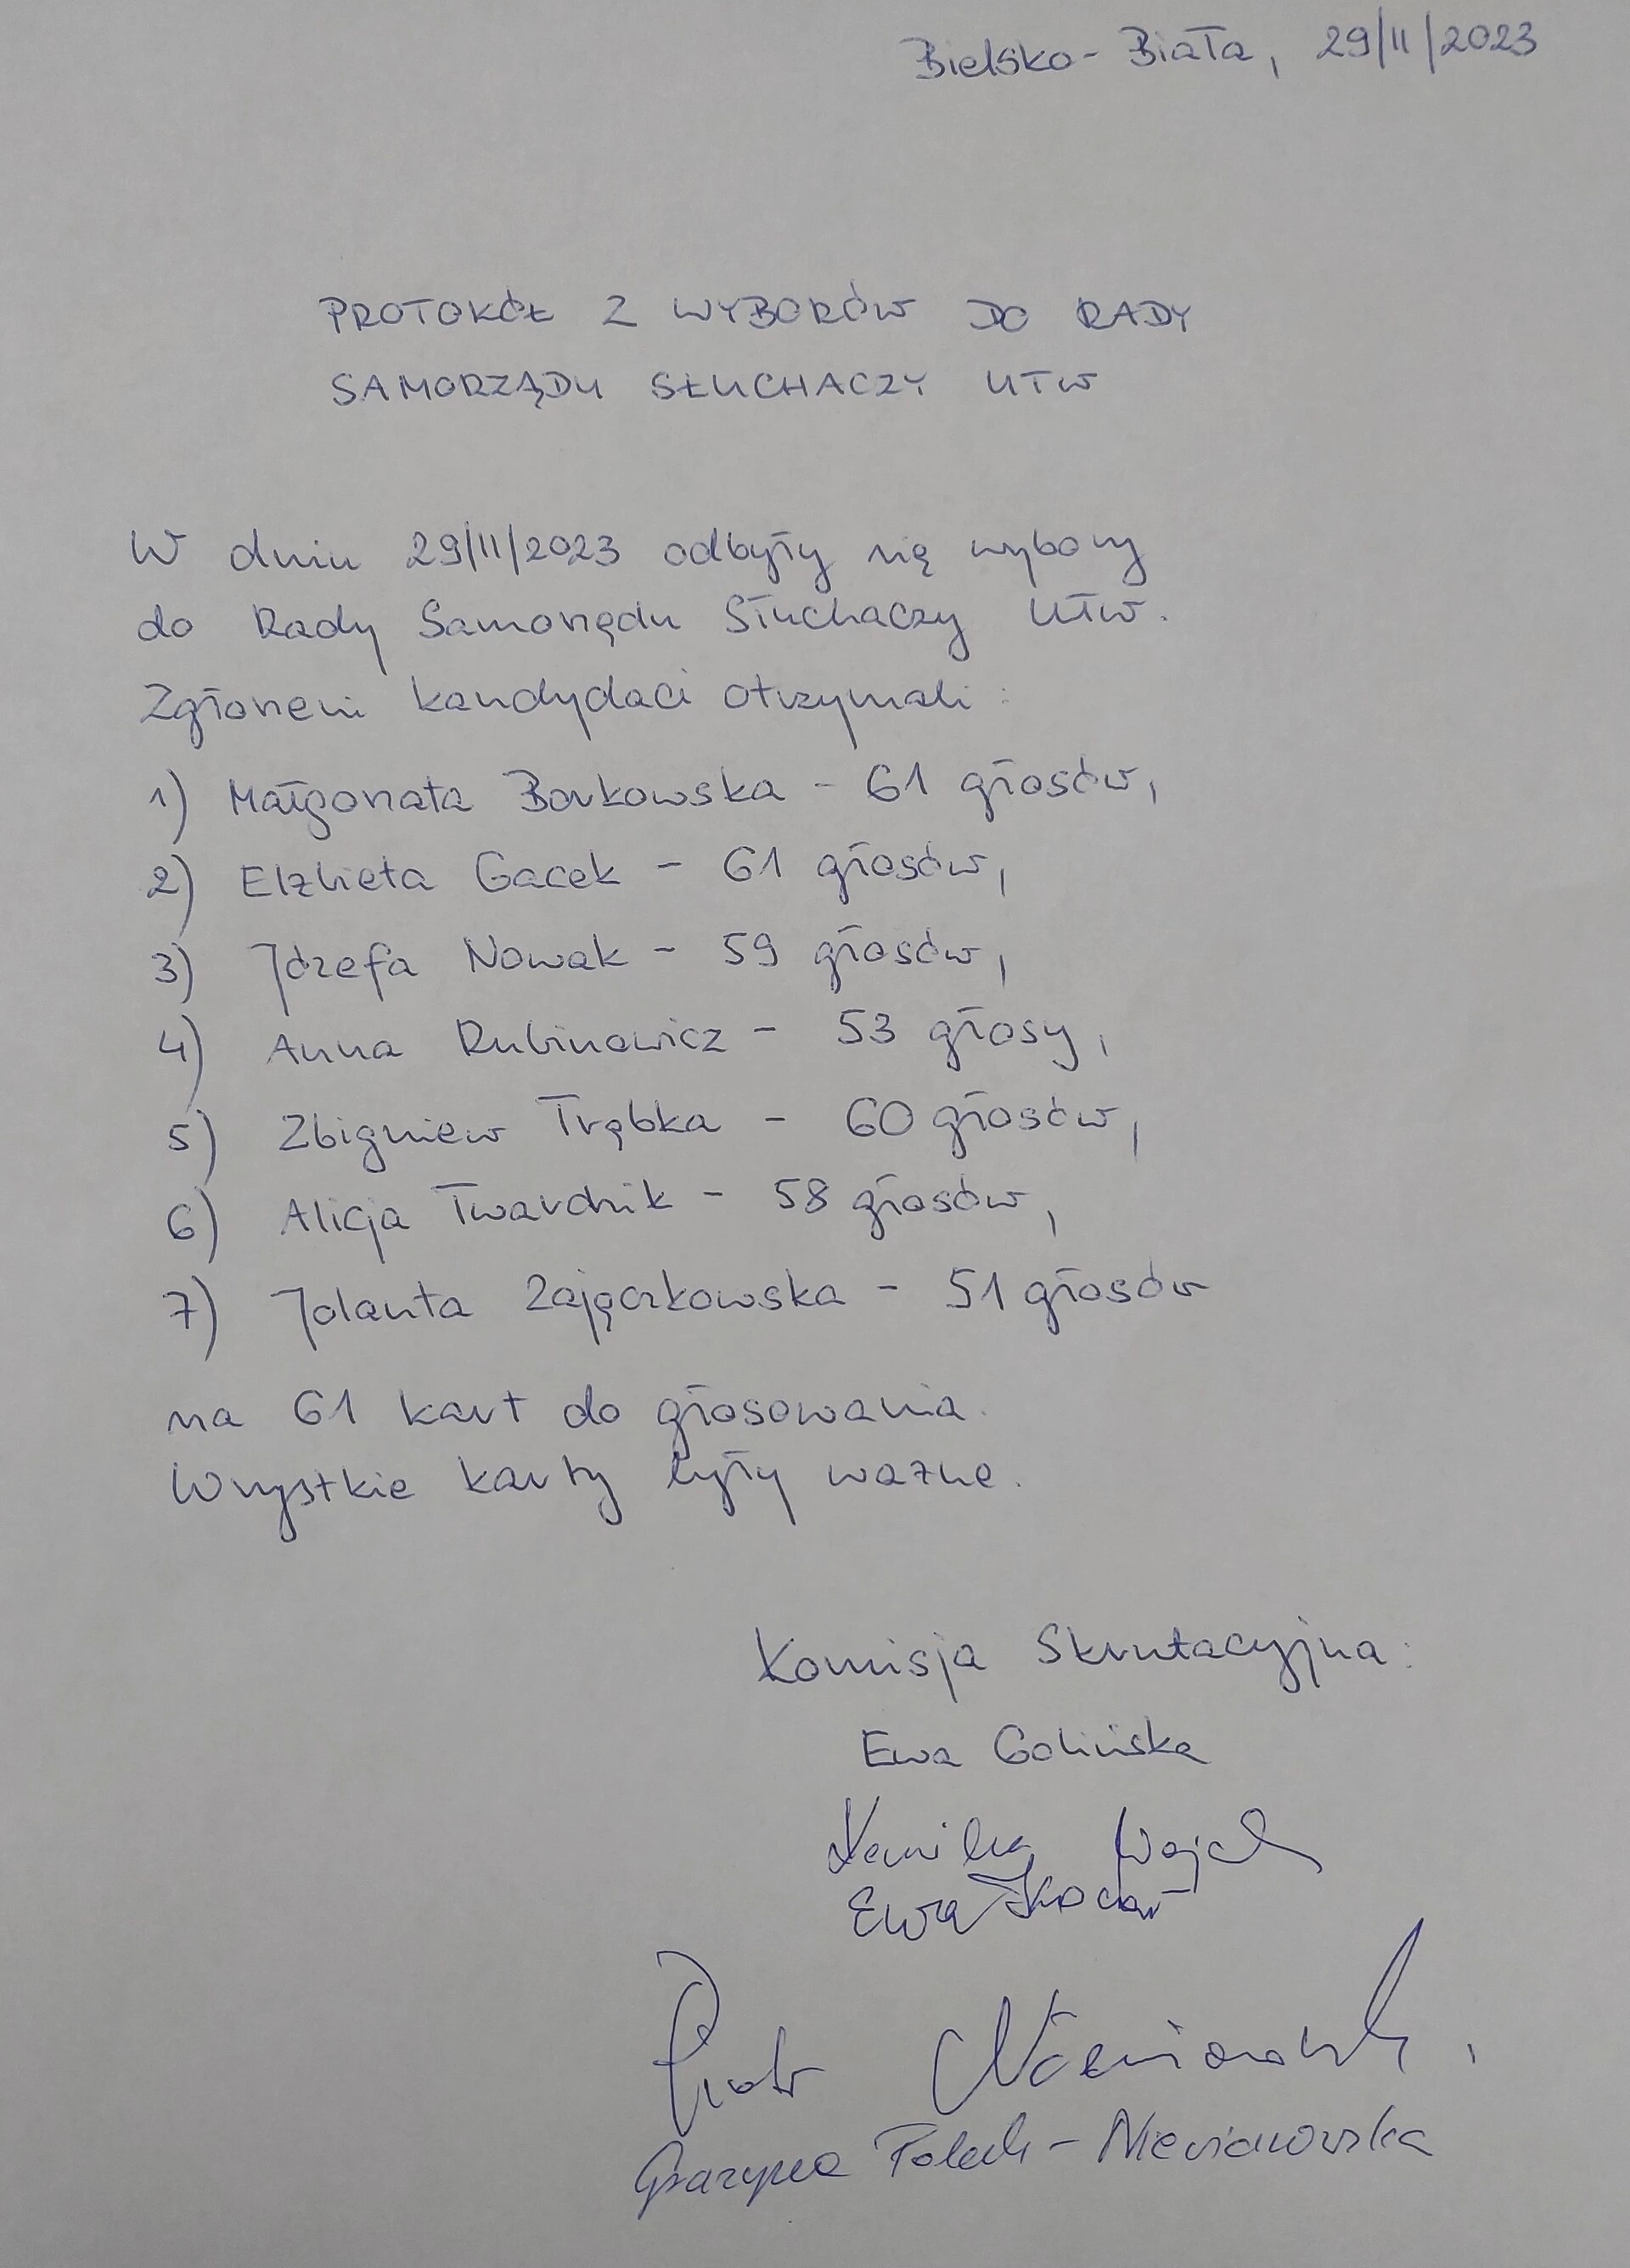 Bielsko-Biała, 29/11/2023
PROTOKÓŁ Z WYBORÓW DO RADY
SAMORZĄDU SŁUCHACZY UTW
W dniu 29/11/2023 odbyły się wybory
do Rady Samorządu Słuchaczy UTW.
Zgłoszeni kandydaci otrzymali:
1) Małgorzata Borkowska - 61 głosów,
2) Elżbieta Gacek - 61 głosów,
3) Józefa Nowak - 59 głosów,
4) Anna Rubinowicz - 53 głosy,
5) Zbigniew Trąbka - 60 głosów,
6) Alicja Twardzik - 58 głosów,
7) Jolanta Zajączkowska - 51 głosów
na 61 kart do głosowania.
Wszystkie karty były ważne.
Komisja Skrutacyjna:
Ewa Golińska
Kamila
Ewa
Piotr
Grażyna